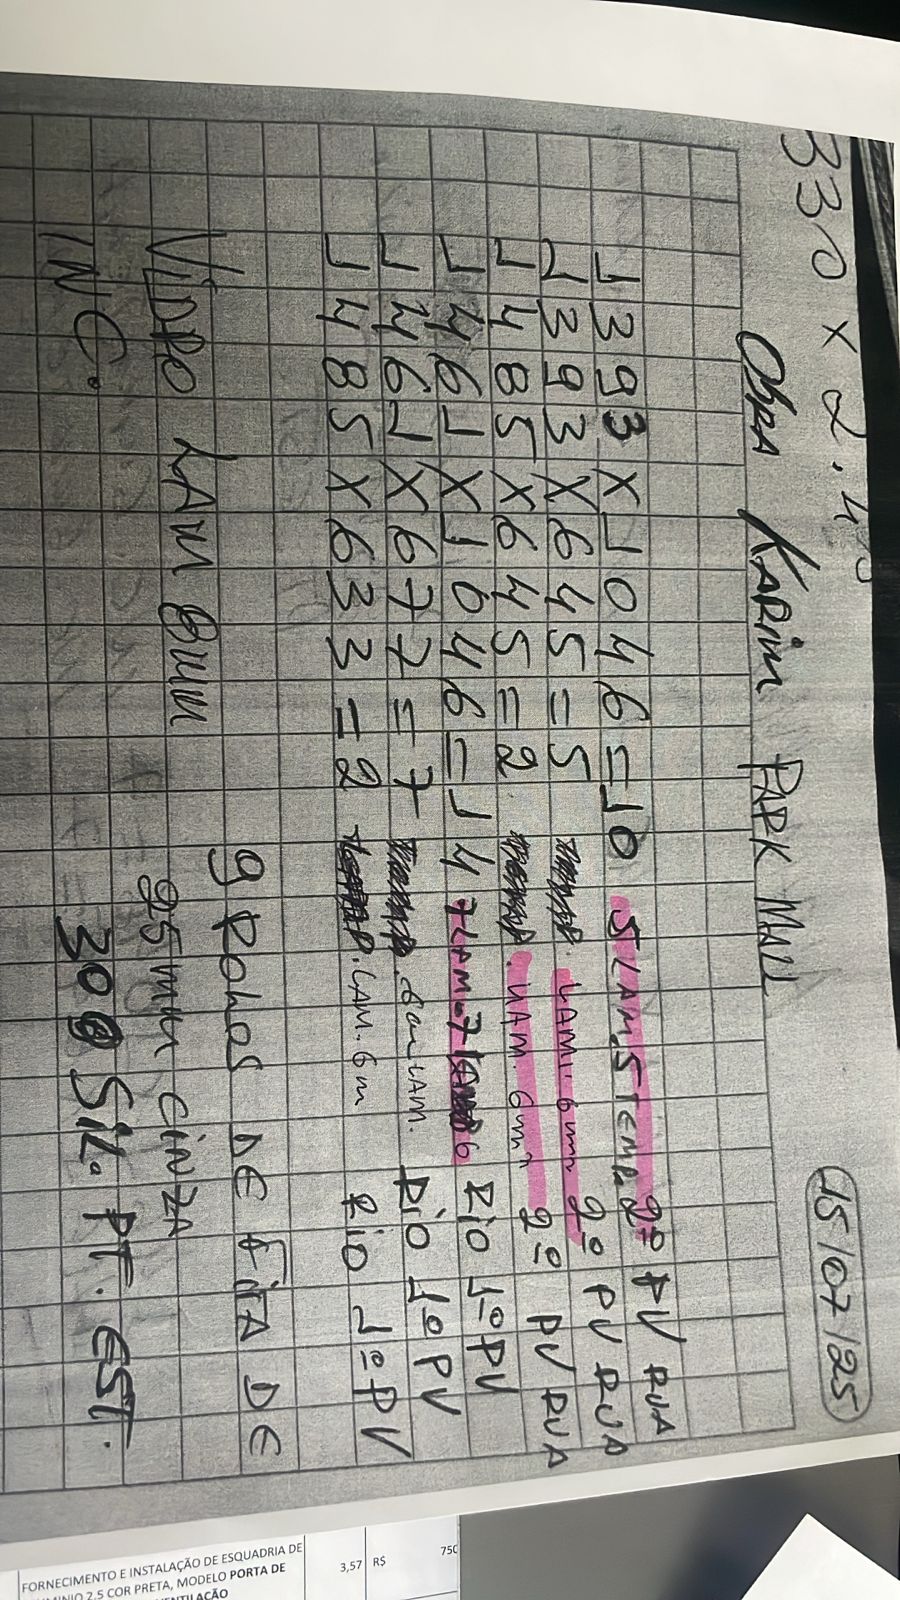 330 x 2.40
15/07/25
Obra Karim PARK MALL
1393 X 1046 = 10 5 LAM. 5 TEMP. 2º PV RUA
1393 X 645 = 5 LAM. 6mm 2º PV RUA
1485 X 645 = 2 LAM. 6mm 2º PV RUA
1461 X 1046 = 14 7 LAM - 7 Rio 1º PV
1461 X 677 = 7 6mm LAM. Rio 1º PV
1485 X 633 = 2 LAM. 6m Rio 1º PV
9 Rolos DE FiTA DE
ViDRO LAM 8mm 25mm CiNZA
INC. 300 SiL. PT. EST.
FORNECIMENTO E INSTALAÇÃO DE ESQUADRIA DE
2.5 COR PRETA, MODELO PORTA DE
3,57 R$ 750